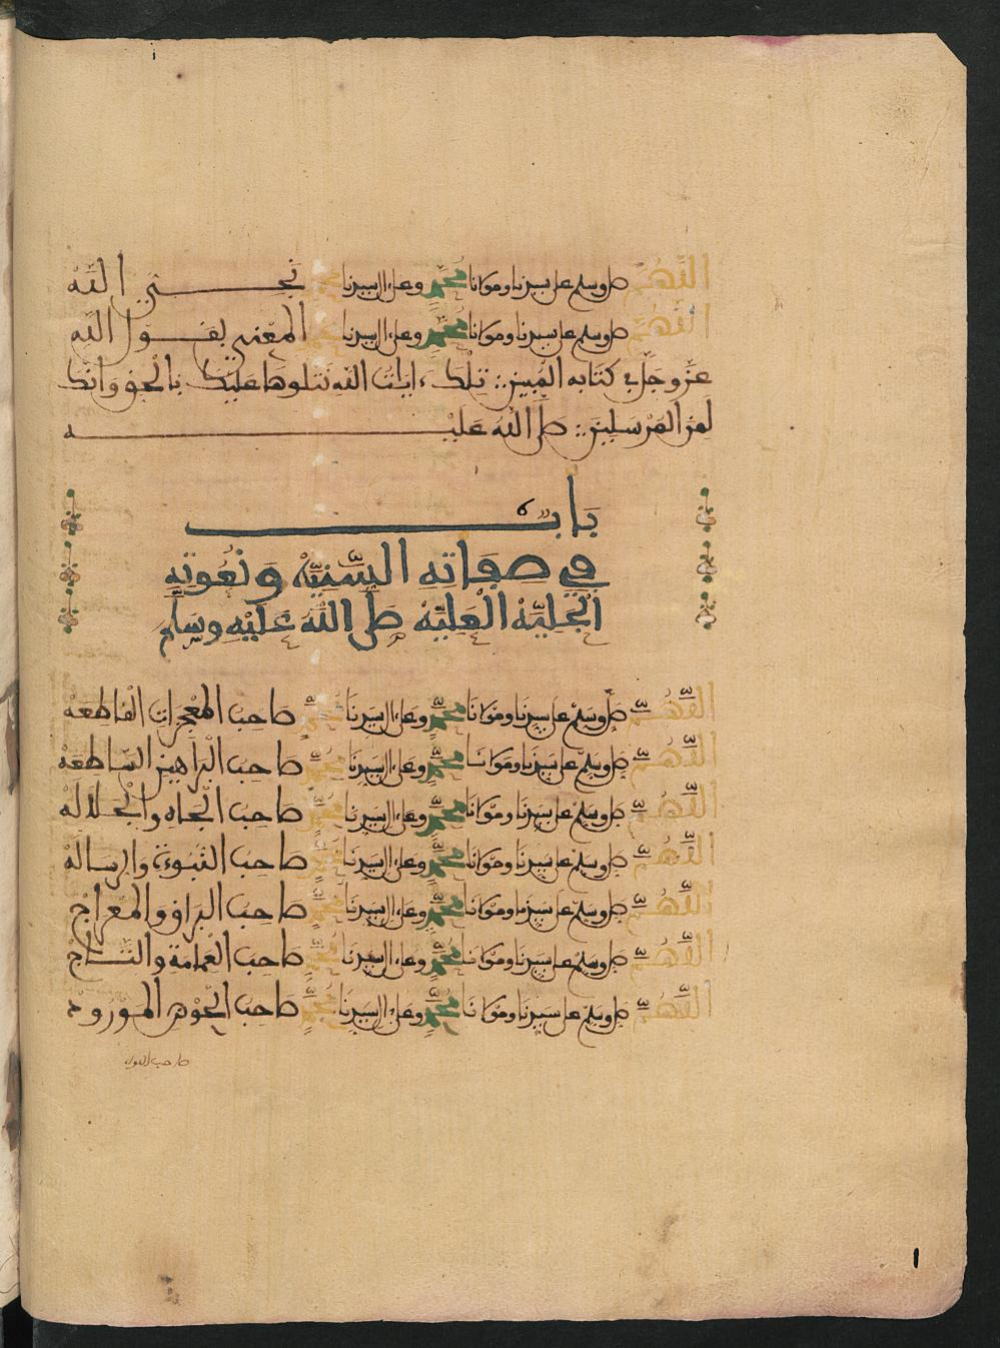 اللهم صل وسلم على سيدنا ومولانا محمد وعلى ءال سيدنا محمد نجي الله
اللهم صل وسلم على سيدنا ومولانا محمد وعلى ءال سيدنا محمد المعني بقول الله
عز وجل في كتابه المبين تلك ءايات الله نتلوها عليك بالحق وانك
لمن المرسلين صلى الله عليه
باب
في صفاته السنيه ونعوته
الجليه العليه صلى الله عليه وسلم
اللهم صل وسلم على سيدنا ومولانا محمد وعلى ءال سيدنا محمد صاحب المعجزات القاطعه
اللهم صل وسلم على سيدنا ومولانا محمد وعلى ءال سيدنا محمد صاحب البراهين الساطعه
اللهم صل وسلم على سيدنا ومولانا محمد وعلى ءال سيدنا محمد صاحب الجاه والجلاله
اللهم صل وسلم على سيدنا ومولانا محمد وعلى ءال سيدنا محمد صاحب النبوءة والرساله
اللهم صل وسلم على سيدنا ومولانا محمد وعلى ءال سيدنا محمد صاحب البراق والمعراج
اللهم صل وسلم على سيدنا ومولانا محمد وعلى ءال سيدنا محمد صاحب العمامة والتاج
اللهم صل وسلم على سيدنا ومولانا محمد وعلى ءال سيدنا محمد صاحب الحوض المورود
صاحب اللواء
1